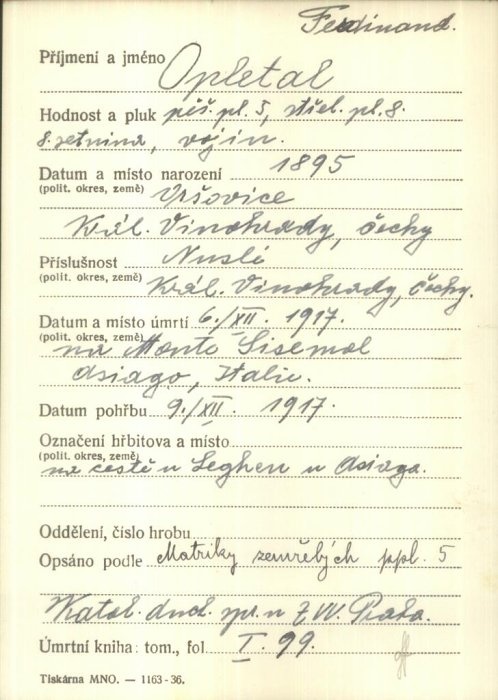 Ferdinand.
Příjmení a jméno Opletal
Hodnost a pluk pěš. pl. 5, střel. pl. 8.
8. setnina, vojín.
Datum a místo narození 1895
(polit. okres, země) Vršovice
Král. Vinohrady, Čechy
Příslušnost Nuslé
(polit. okres, země) Král. Vinohrady, Čechy.
Datum a místo úmrtí 6./XII. 1917.
(polit. okres, země) na Monte Sisemol
Asiago, Italie.
Datum pohřbu 9./XII. 1917.
Označení hřbitova a místo
(polit. okres, země) na cestě u Leghen u Asiaga.
Oddělení, číslo hrobu
Opsáno podle Matriky zemřelých ppl. 5
Katol. duch. spr. u ZVV. Praha.
Úmrtní kniha: tom., fol. I. 99.
Tiskárna MNO. — 1163-36.